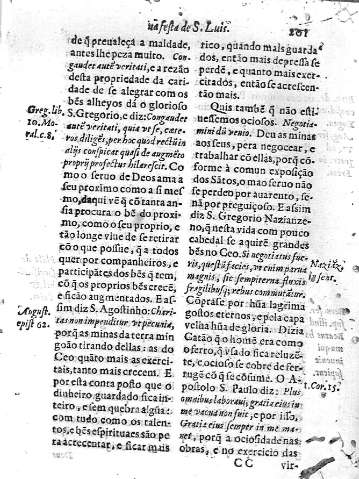 na festa de S. Luis. 201
de q̃ preualeça a maldade,
antes lhe peza muito. Con-
gaudet autẽ veritati, e a rezão
desta propriedade da cari-
dade de se alegrar com os
bẽs alheyos dá o glorioso
S. Gregorio, e diz: Congaudet
autẽ veritati, quia vt se, cæte-
ros diligẽs, per hoc quod rectũ in
alijs conspicit quasi de augmẽto
proprij profectus hilarescit. Co
mo o seruo de Deos ama a
seu proximo como a si mes
mo, daqui vẽ q̃ cõ tanta an-
sia procura o bẽ do proxi-
mo, como o seu proprio, e
tão longe viue de se retirar
cõ o que possue, q̃ a todos
quer por companheiros, e
participãtes dos bẽs q̃ tem,
cõ q̃ os proprios bẽs crecẽ,
e ficão augmentados. E as-
sim diz S. Agostinho: Chari-
tas non impenditur vt pecunia,
porq̃ as minas da terra min
goão tirando dellas: as do
Ceo quãto mais as exerci-
tais, tanto mais crecem. E
por esta conta posto que o
dinheiro guardado fica in-
teiro, e sem quebra algũa:
com tudo como os talen-
tos, e bẽs espirituaes são pe
ra acrecentar, e ficar mais
Greg. lib.
10. Mo-
ral. c. 8.
August.
epist 62.
rico, quando mais guarda
dos, então mais depressa se
perde, e quanto mais exer-
citados, então se acrescen-
tão mais.
Quis tambẽ q̃ não esti-
uessemos ociosos. Negotia-
mini dũ venio. Deu as minas
aos seus, pera negocear, e
trabalhar cõ ellas, porq̃ cõ-
forme à comum exposição
dos Sãtos, o mao seruo não
se perdeo por auarento, se-
nã por preguiçoso. E assim
diz S. Gregorio Nazianze-
no, q̃ nesta vida com pouco
cabedal se aquirẽ grandes
bẽs no Ceo. Si negotiatus fue-
ris, quæstũ facies, vt enim parua
magnis, sic sempiterna fluxis
fragilibusq; rebus cõmutãtur.
Cõprãse por hũa lagrima
gostos eternos, e pela capa
velha hũa de gloria. Dizia
Catão q̃ o homẽ era como
o ferro, q̃ vsado fica reluzẽ-
te, e ocioso se cobre de fer-
rugẽ cõ q̃ se cõsume. O A-
postolo S. Paulo diz: Plus
omnibus laboraui, gratia eius in
me vacua non fuit, e por isso,
Gratia eius semper in me ma-
net, porq̃ a ociosidade nas
obras, e no exercicio das
Naziãz.
1. Cor. 15.
CC vir-